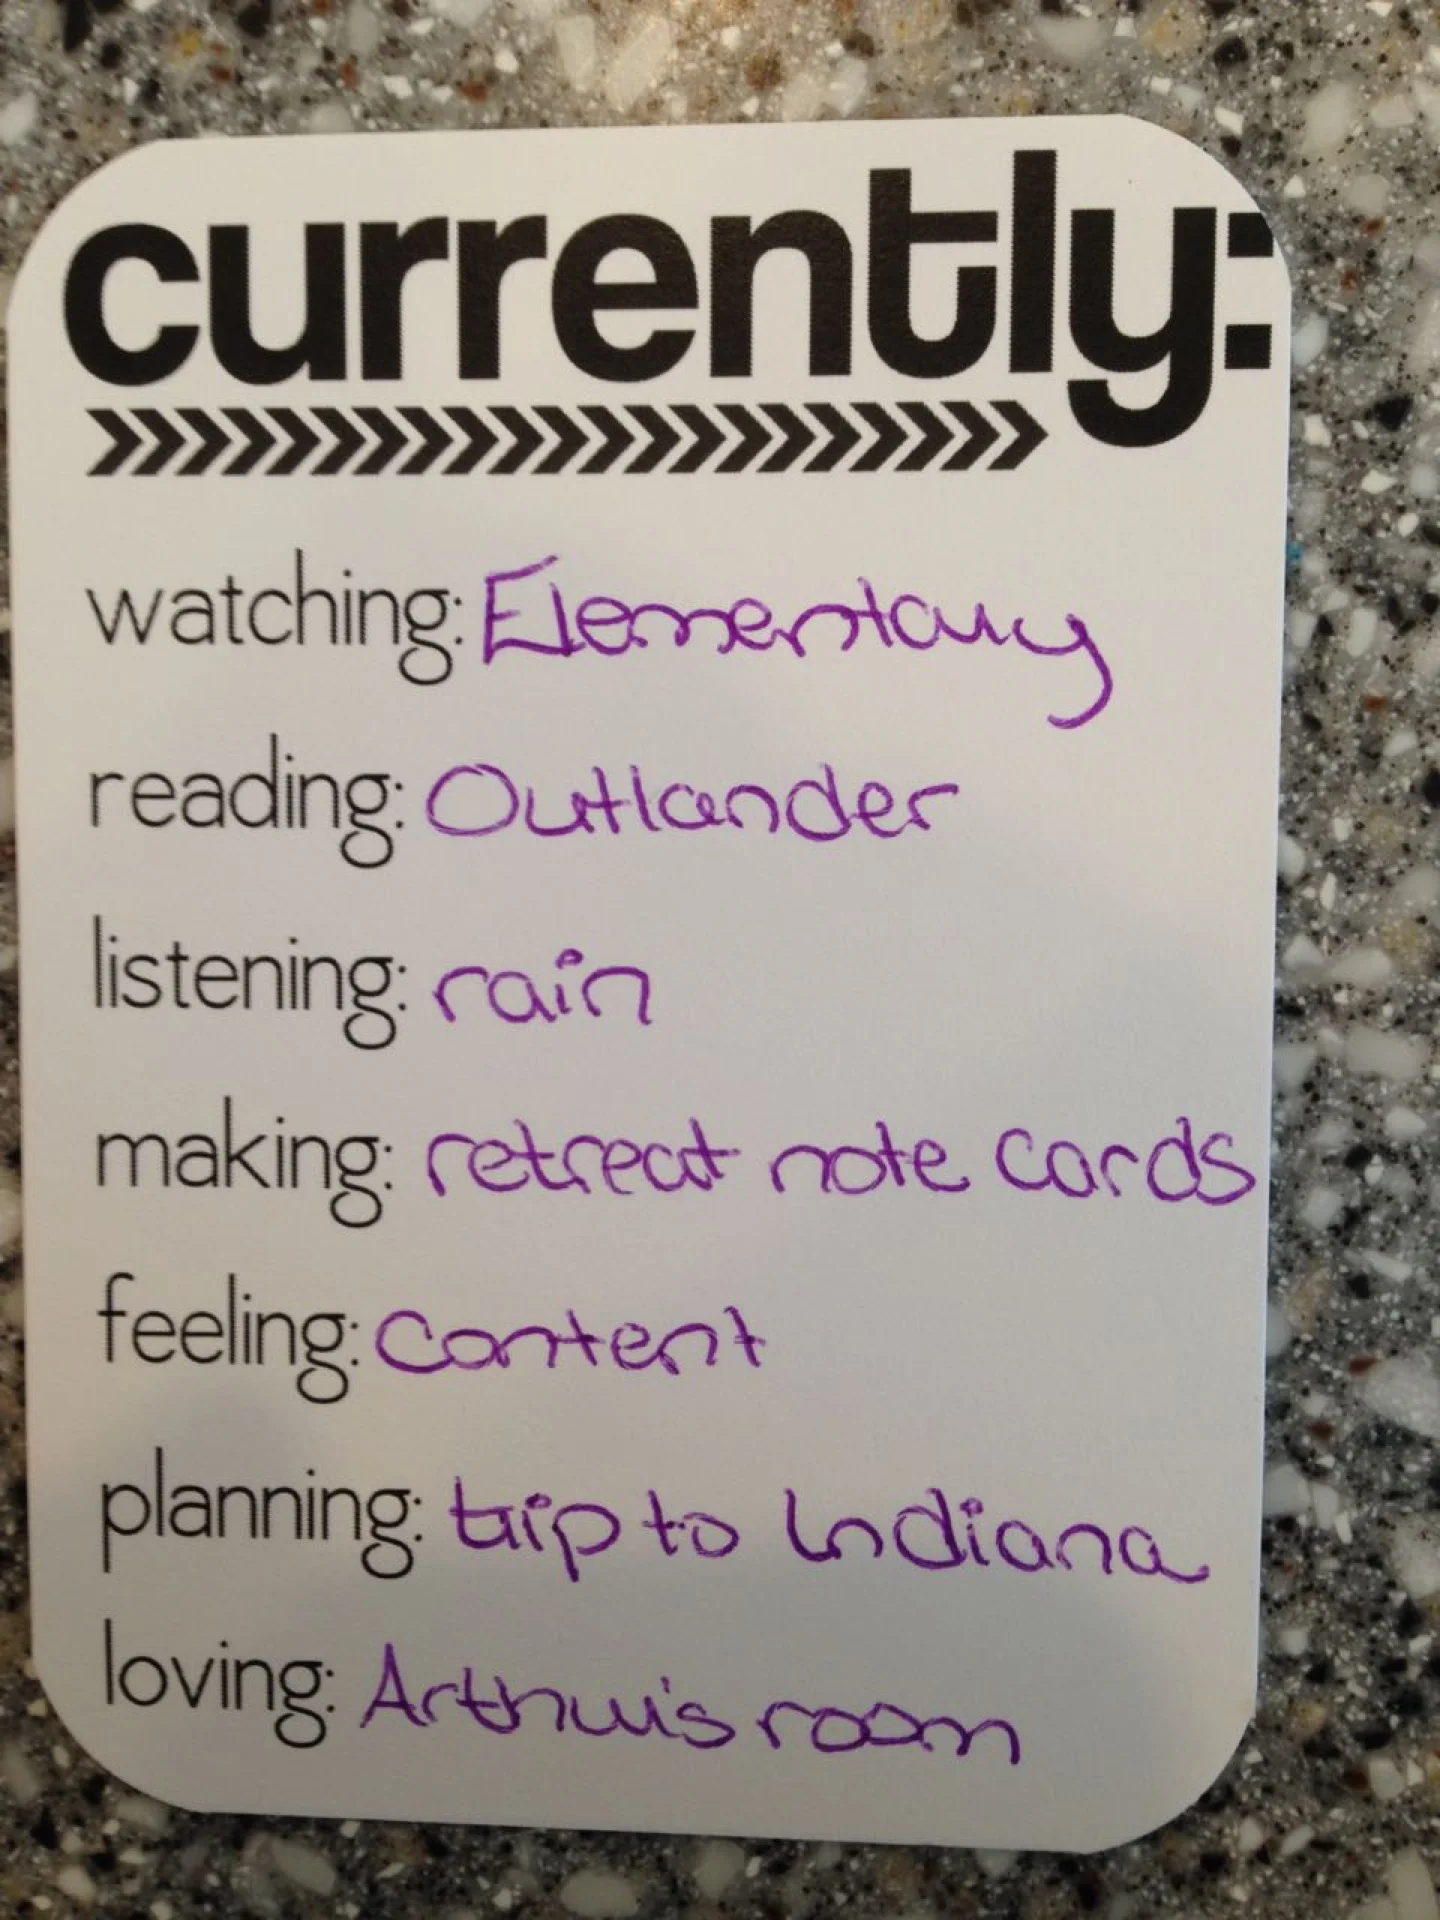 currently:
watching: Elementary
reading: Outlander
listening: rain
making: retreat note cards
feeling: content
planning: trip to Indiana
loving: Arthur's room